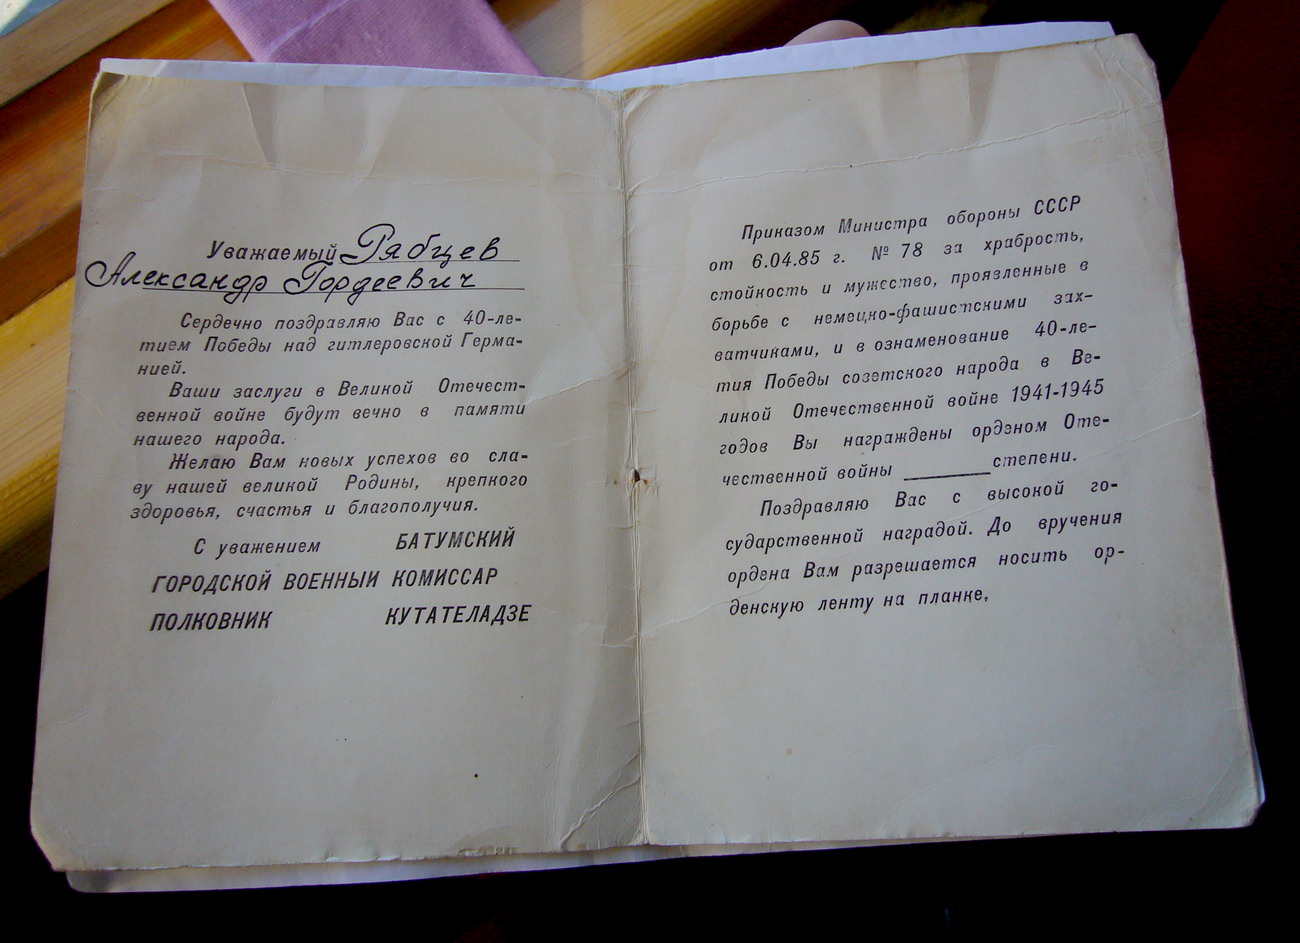 Уважаемый Рябцев
Александр Гордеевич
Сердечно поздравляю Вас с 40-ле-
тием Победы над гитлеровской Герма-
нией.
Ваши заслуги в Великой Отечест-
венной войне будут вечно в памяти
нашего народа.
Желаю Вам новых успехов во сла-
ву нашей великой Родины, крепкого
здоровья, счастья и благополучия.
С уважением БАТУМСКИЙ
ГОРОДСКОЙ ВОЕННЫИ КОМИССАР
ПОЛКОВНИК КУТАТЕЛАДЗЕ
Приказом Министра обороны СССР
от 6.04.85 г. № 78 за храбрость,
стойкость и мужество, проязленные в
борьбе с немецко-фашистскими зах-
ватчиками, и в ознаменование 40-ле-
тия Победы созетского народа в Ве-
ликой Отечественной войне 1941-1945
годов Вы награждены орденом Оте-
чественной войны ________ степени.
Поздравляю Вас с высокой го-
сударственной наградой. До вручения
ордена Вам разрешается носить ор-
денскую ленту на планке,